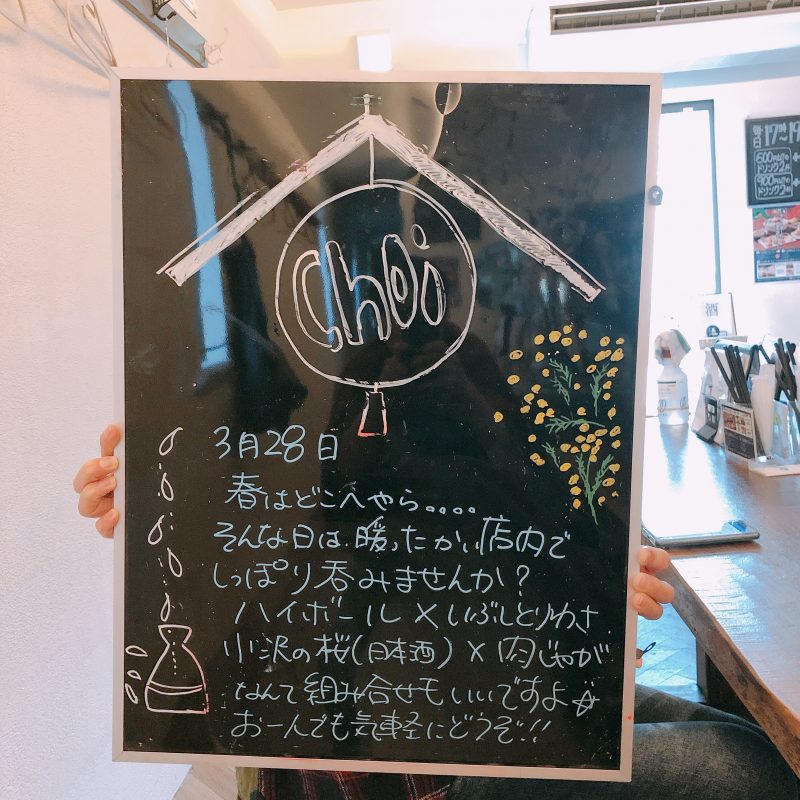 Choi
3月28日
春はどこへやら。。。。
そんな日は、暖ったかい店内で
しっぽり呑みませんか?
ハイボール×いぶしとりわさ
小沢の桜(日本酒)×肉じゃが
なんて組み合せもいいですよ☆
お一人でも気軽にどうぞ!!
毎日17時~19
600
ドリンク2杯
900
ドリンク2杯
酒